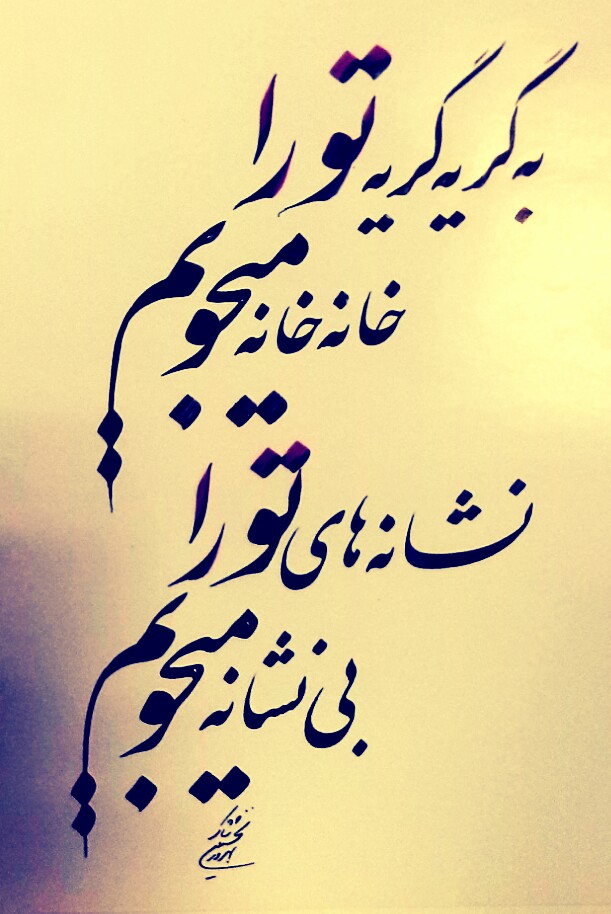 به گریه گریه تو را
خانه خانه میجویم
نشانه های تو را
بی نشانه میجویم